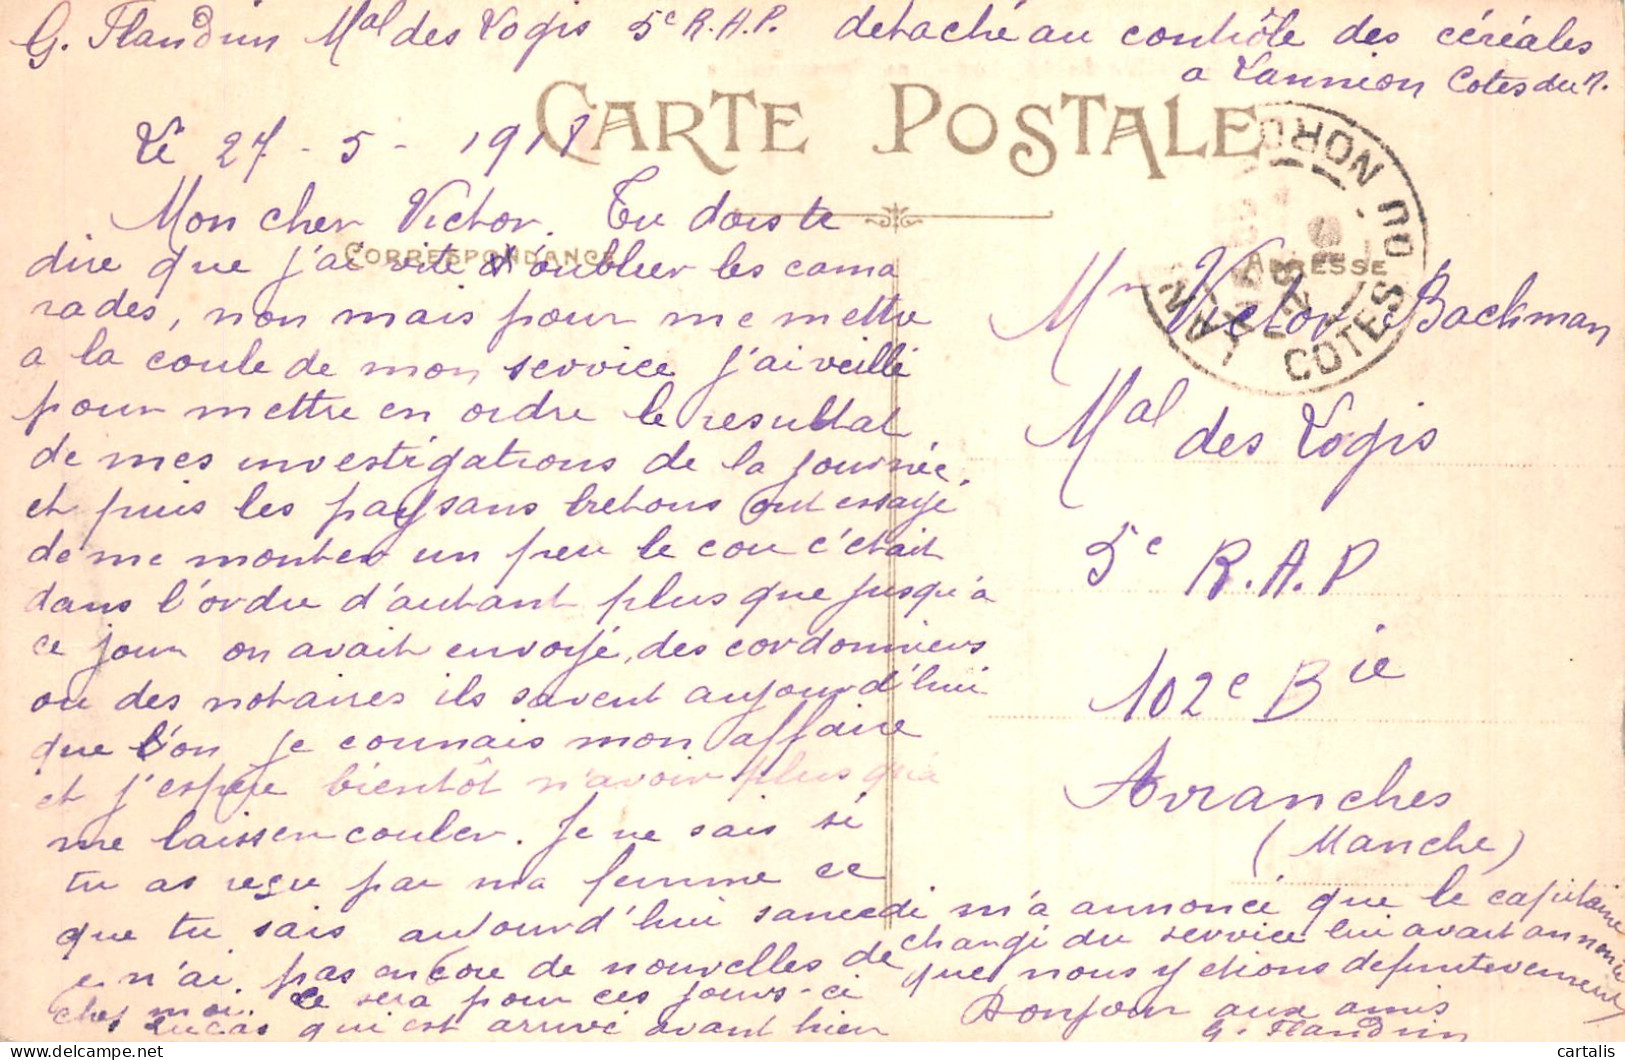 G. Flandrin Mal des Logis 5e R.A.P. detaché au contrôle des céréales
a Lannion Cotes du N.
CARTE POSTALE
Le 27 - 5 - 1918
Mon cher Victor. Tu dois te
CORRESPONDANCE
dire que j'ai vite d'oublier les cama
rades, non mais pour me mettre
a la coule de mon service j'ai veillé
pour mettre en ordre le resultat
de mes investigations de la journée,
et puis les paysans bretons ont essayé
de me monter un peu le cou c'etait
dans l'ordre d'autant plus que jusqu'a
ce jour on avait envoyé, des cordonniers
ou des notaires ils savent aujourd'hui
que l'on je connais mon affaire
et j'espère bientôt n'avoir plus qu'a
me laisser couler. Je ne sais si
tu as reçu par ma femme ce
que tu sais aujourd'hui samedi
je n'ai pas encore de nouvelles de
chez moi. Ce sera pour ces jours-ci
Lucas qui est arrivé avant hier
m'a annoncé que le capitaine
changé du service lui avait annoncé
que nous y etions definitivement
Bonjour aux amis
G. Flandrin
ADRESSE
Mr Victor Backman
Mal des Logis
5e R.A.P
102e Bie
Avranches
(Manche)
LANNION
COTES DU NORD